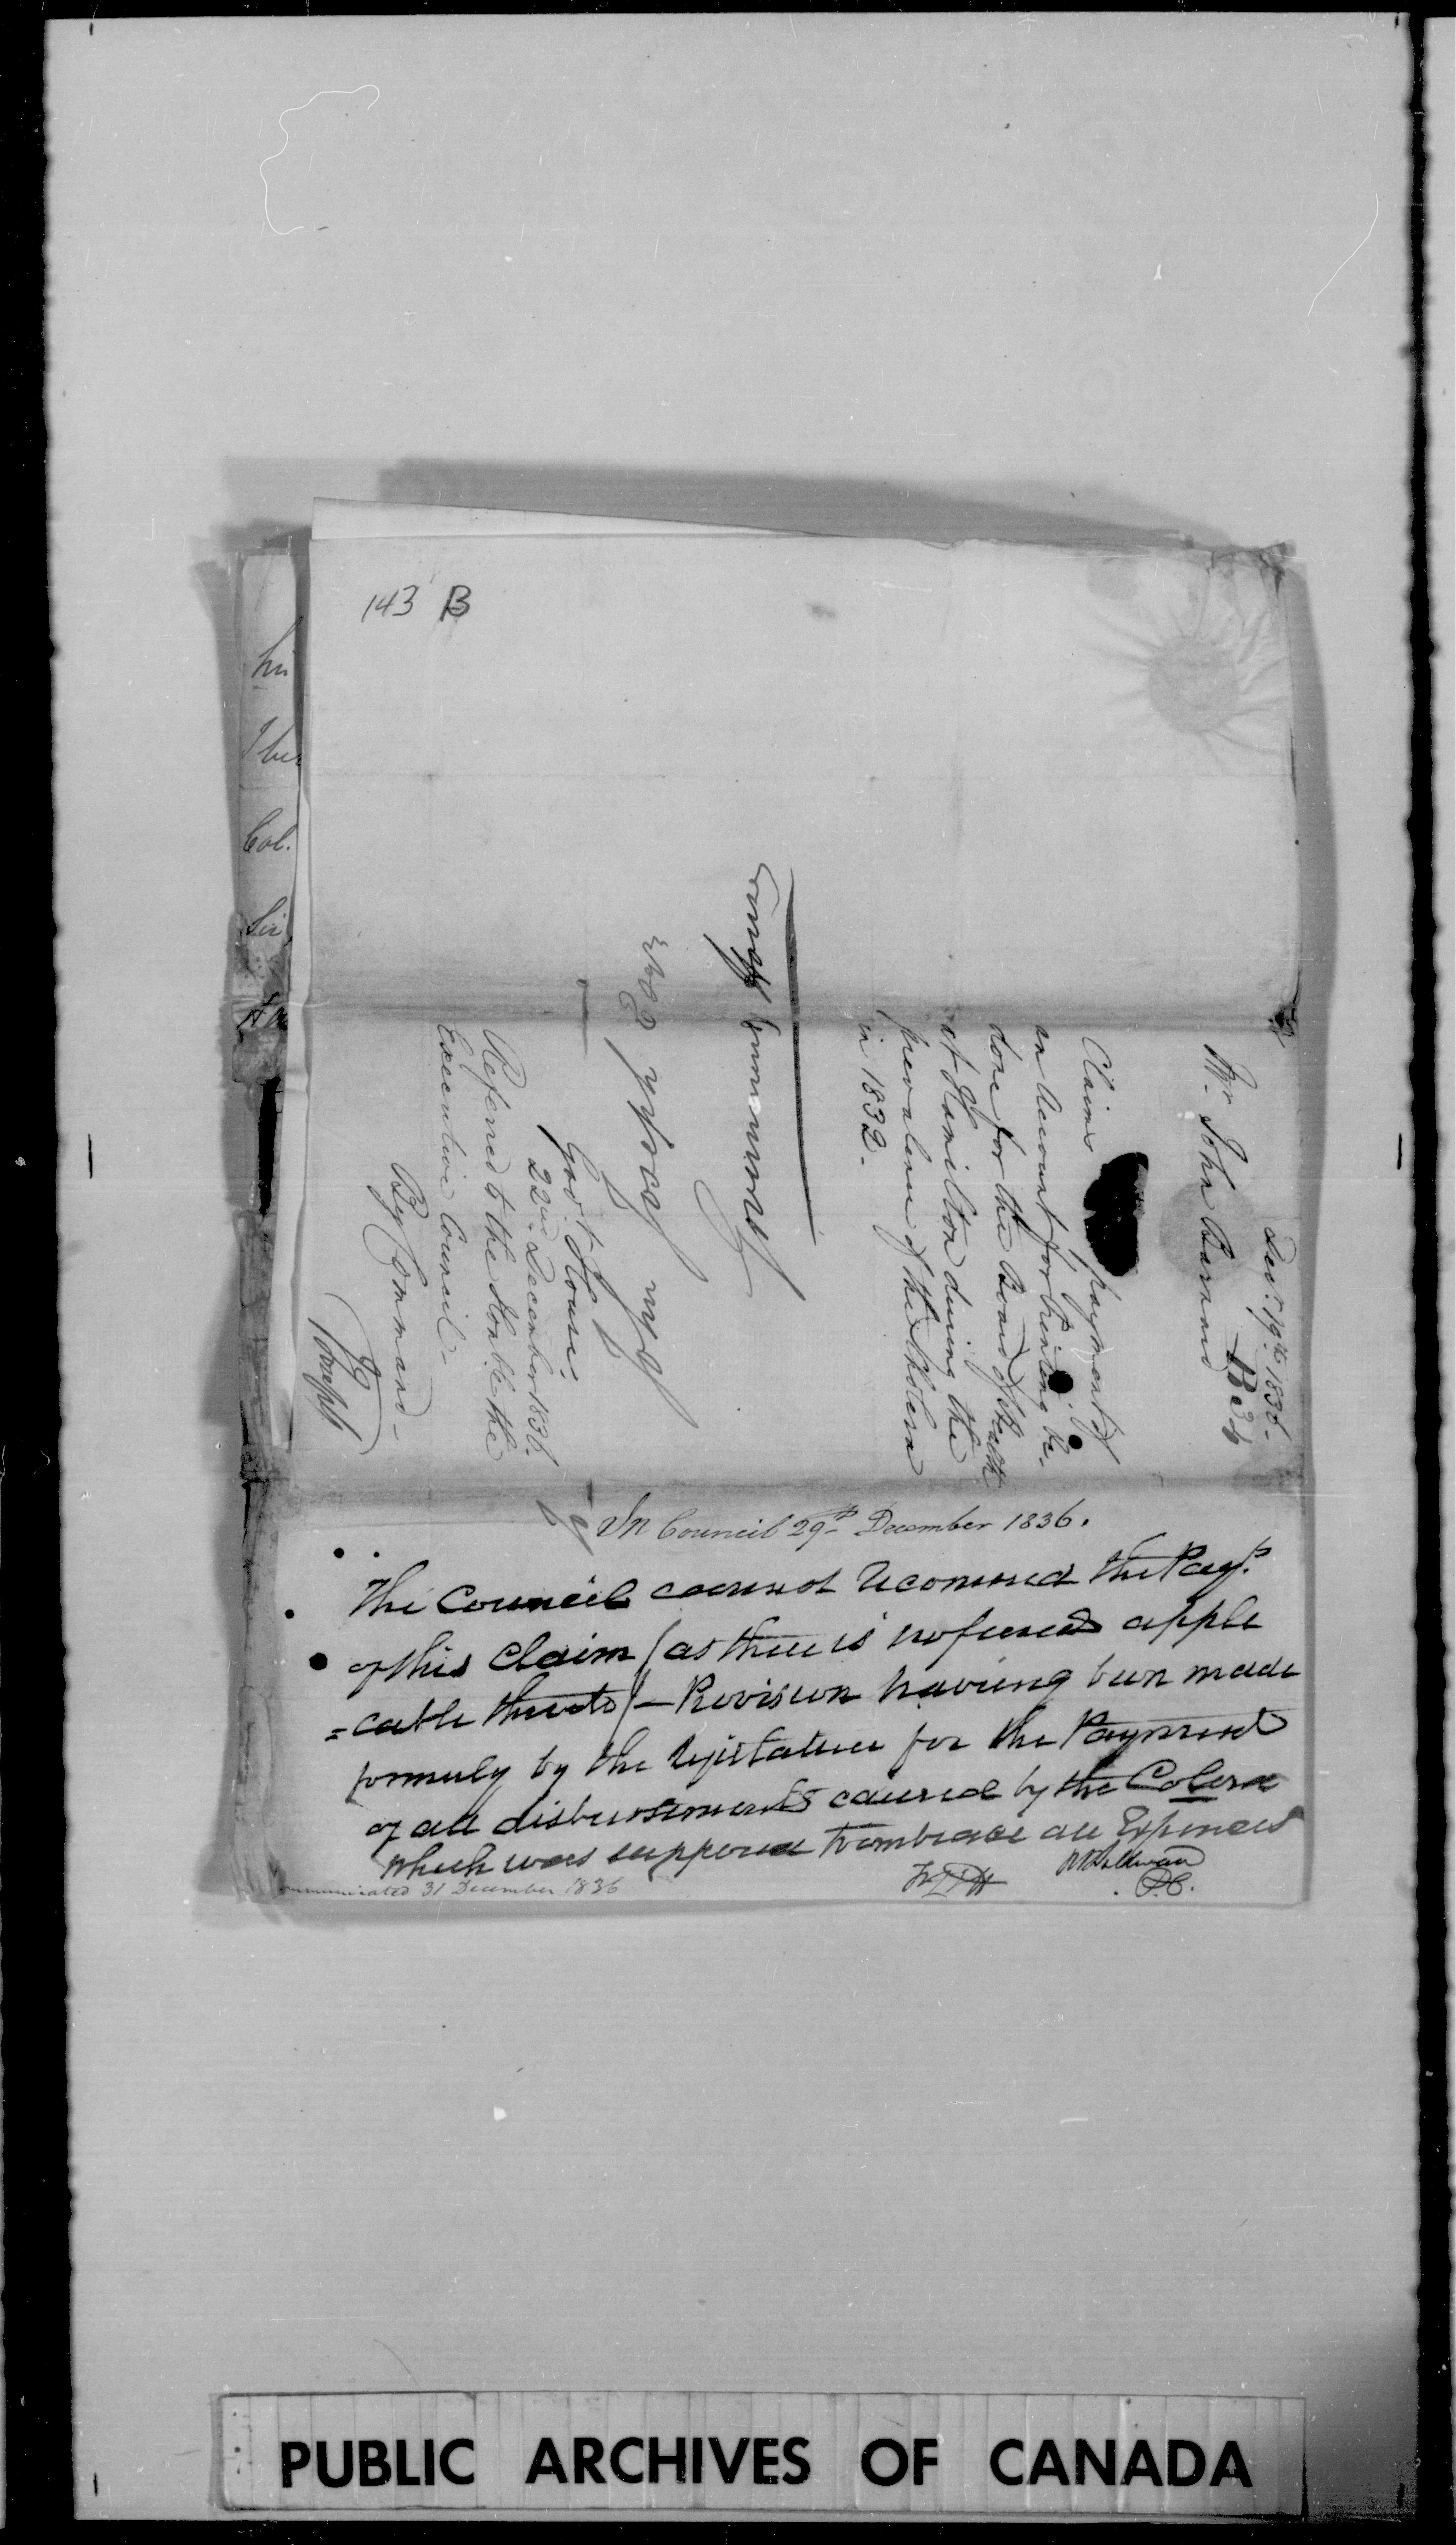 143 B
his
Col.
Sir
Dec.r 19th 1836-
B 34
Mr John Barnard
Claims payment of
an Account for Printing be-
done for the Board of Health
at Hamilton during the
prevalence of the Cholera
in 1832.
John Joseph Esqr
Gov.t House.
22nd December 1836.
Referred to the Honble the
Executive Council-
By Command-
J Joseph
In Council 29th December 1836.
The Council cannot recommend the Payt.
of this Claim (as there is no fund appli
=cable thereto)- Provision having been made
formerly by the Legislature for the Payment
of all disbursements caused by the Colera
which was supposed to embrace all Expences
RBSullivan
P.C.
Communicated 31 December 1836
PUBLIC ARCHIVES OF CANADA